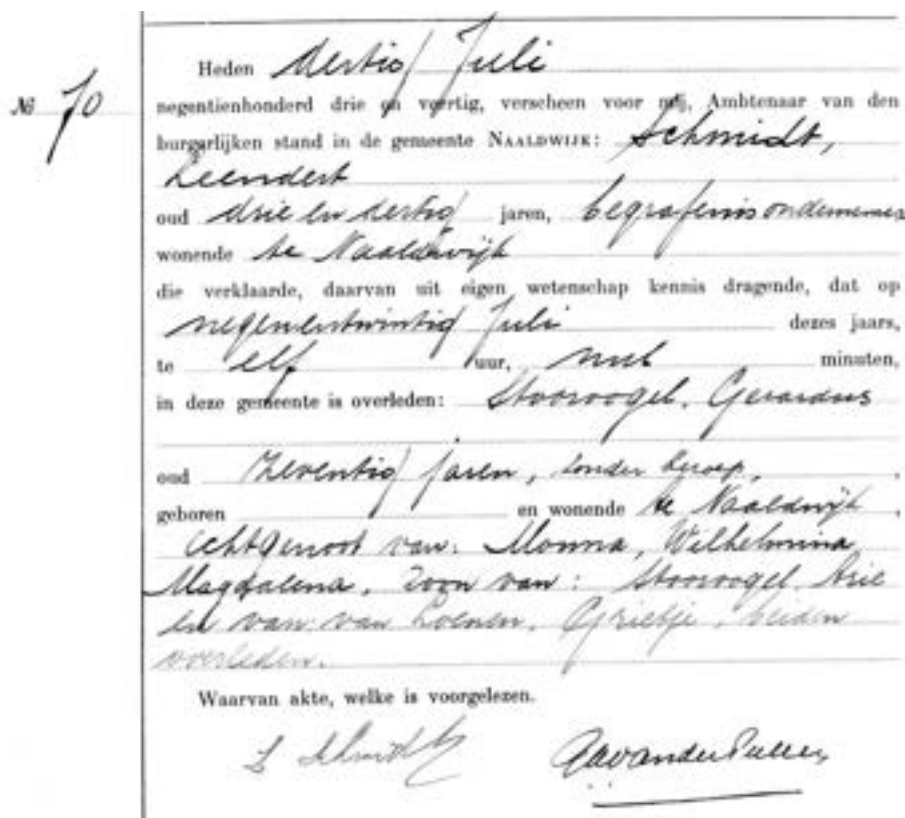 Heden dertig Juli
№ 70
negentienhonderd drie en veertig, verscheen voor mij, Ambtenaar van den
burgerlijken stand in de gemeente NAALDWIJK: Schmidt,
Leendert
oud drie en dertig jaren, begrafenisondernemer
wonende te Naaldwijk
die verklaarde, daarvan uit eigen wetenschap kennis dragende, dat op
negenentwintig Juli dezes jaars,
te elf uur, nul minuten,
in deze gemeente is overleden: Stoorvogel, Gerardus
oud zeventig jaren, zonder beroep,
geboren en wonende te Naaldwijk,
echtgenoot van: Monna, Wilhelmina
Magdalena, zoon van: Stoorvogel, Arie
en van: van Loenen, Grietje, beiden
overleden.
Waarvan akte, welke is voorgelezen.
L Schmidt